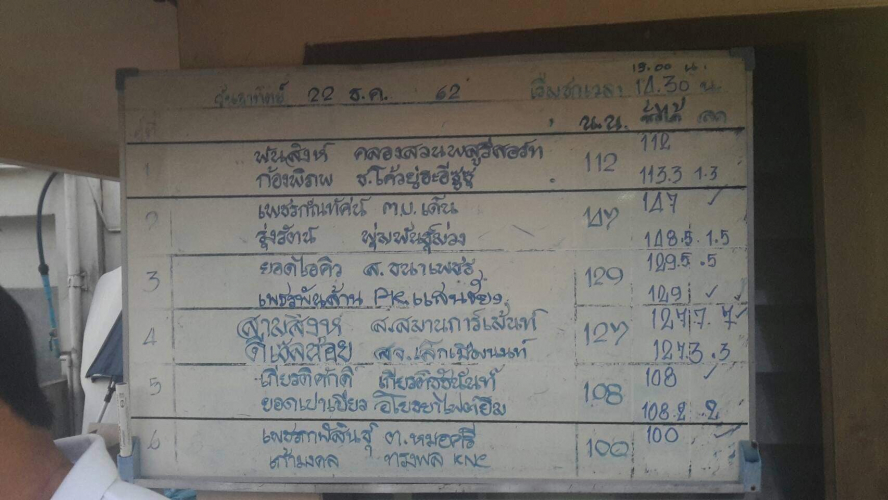 วันอาทิตย์ 22 ธ.ค. 62 เริ่มชกเวลา 14.30 น.
15.00 น.
น.น. ชั่งได้
1 112
พันสิงห์ คลองสวนพลูรีสอร์ท 112
ก้องพิภพ 113.3 1.3
2 147
ต.บ.เดิ่น 147 ✓
รุ่งรัตน์ พุ่มพันธุ์ม่วง 148.5 1.5
3 129
ยอดไอคิว ส.ธนาเพชร 129.5 .5
เพชรพันล้าน PK.แสนชัย 129 ✓
4 127
สามสิงห์ ส.สมานการ์เม้นท์ 127.7 .7
ดีเซลน้อย สจ.เล็กเมืองนนท์ 127.3 .3
5 108
เกียรติศักดิ์ 108 ✓
ยอดเปาเปียว 108.2 .2
6 100
เพชรกาฬสินธุ์ ต.หมอศรี 100 ✓
เก้ามงคล ทรงพล KNC